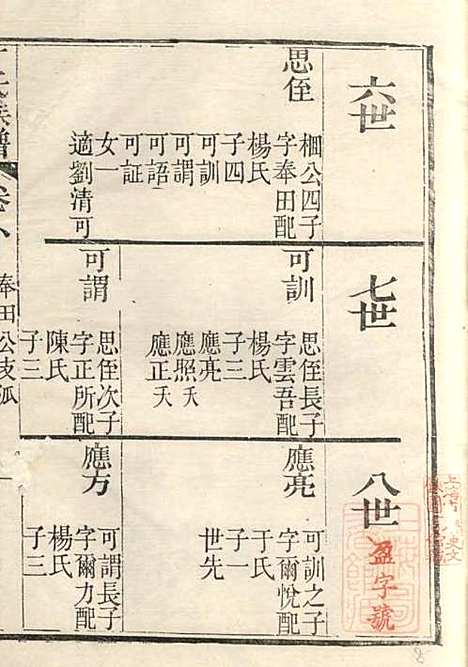 六世
思侄
棞公四子
字奉田配
楊氏
子四
可訓
可謂
可語
可証
女一
適劉清可
七世
可訓
思侄長子
字雲吾配
楊氏
子三
應亮
應照夭
應正夭
可謂
思侄次子
字正所配
陳氏
子三
八世
應亮
可訓之子
字爾悅配
于氏
子一
世先
應方
可謂長子
字爾力配
楊氏
子三
氏族譜
卷八
奉田公支派
盈字號